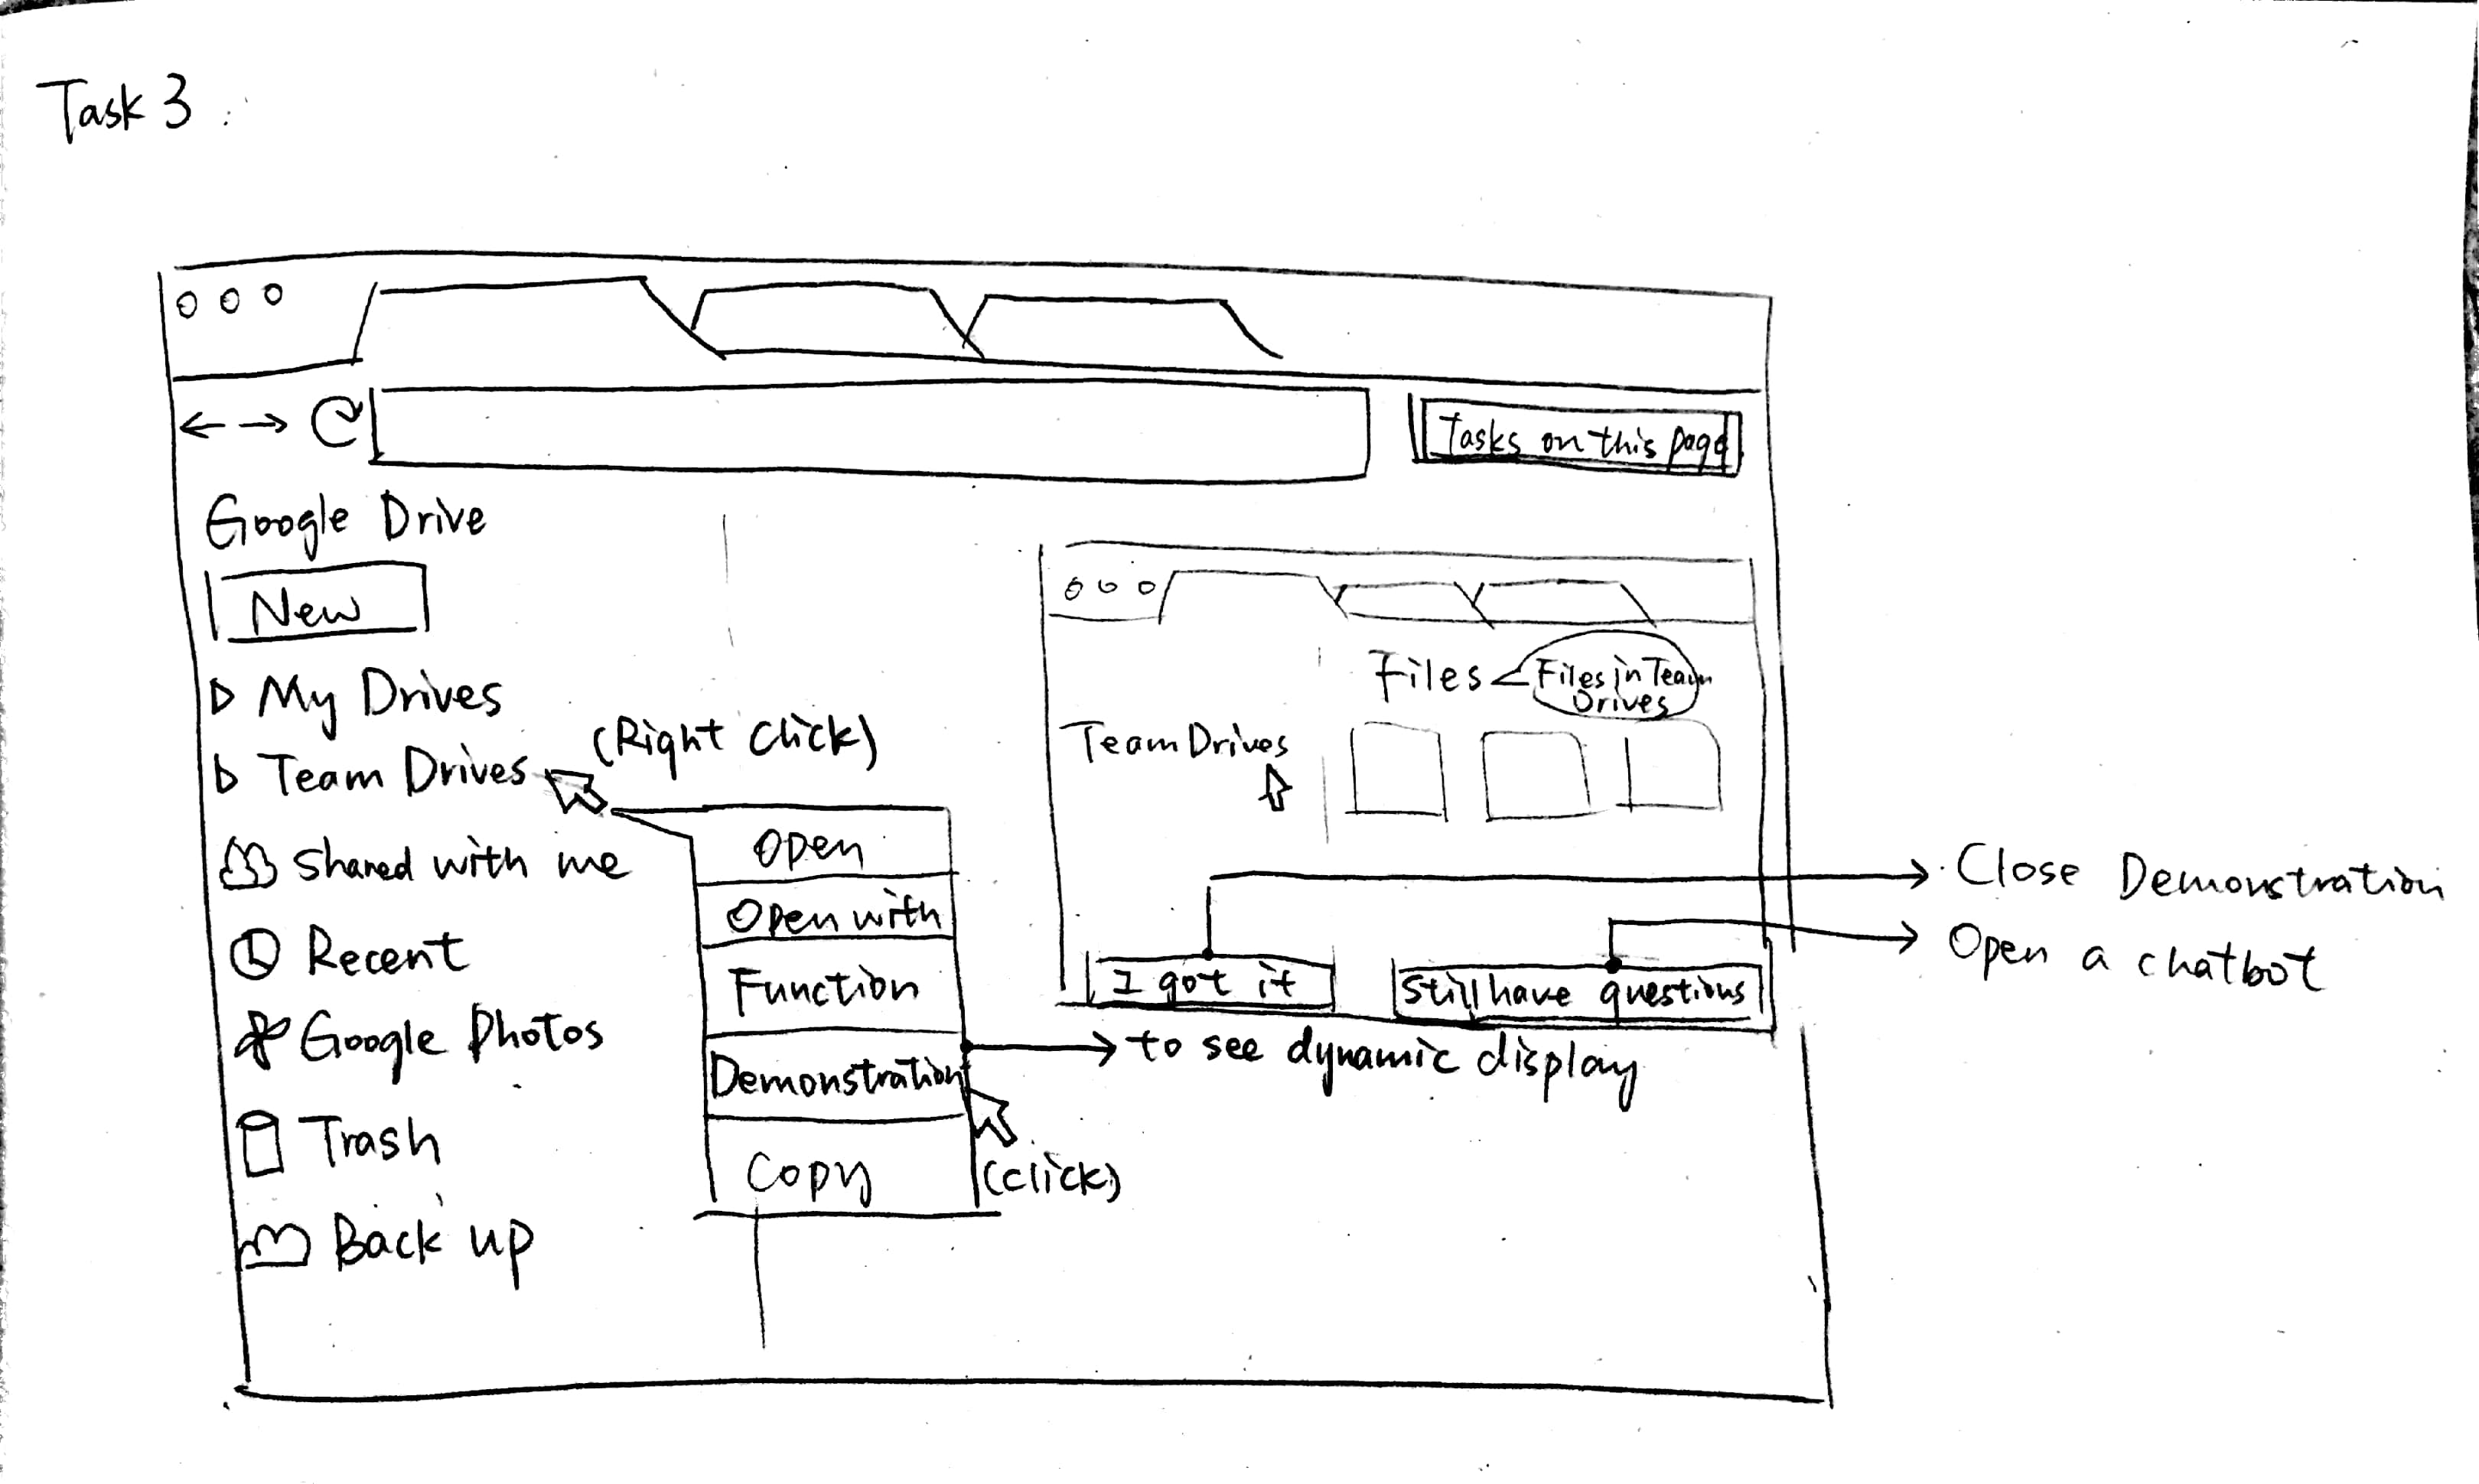 Task 3 :
Tasks on this page
Google Drive
New
My Drives
Team Drives
(Right Click)
Shared with me
Recent
Google Photos
Trash
Back up
Open
Open with
Function
Demonstration
Copy
(click)
to see dynamic display
Files
Files in Team
Drives
Team Drives
I got it
Still have questions
Close Demonstration
Open a chatbot